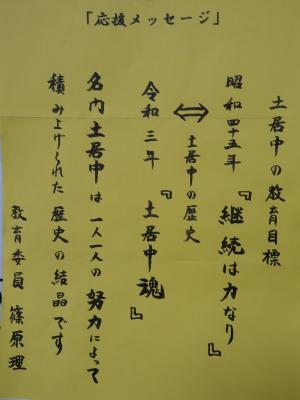 「応援メッセージ」
土居中の教育目標
昭和四十五年『継続は力なり』
⇔土居中の歴史
令和三年『土居中魂』
名門土居中は一人一人の努力によって
積み上げられた歴史の結晶です
教育委員 篠原理